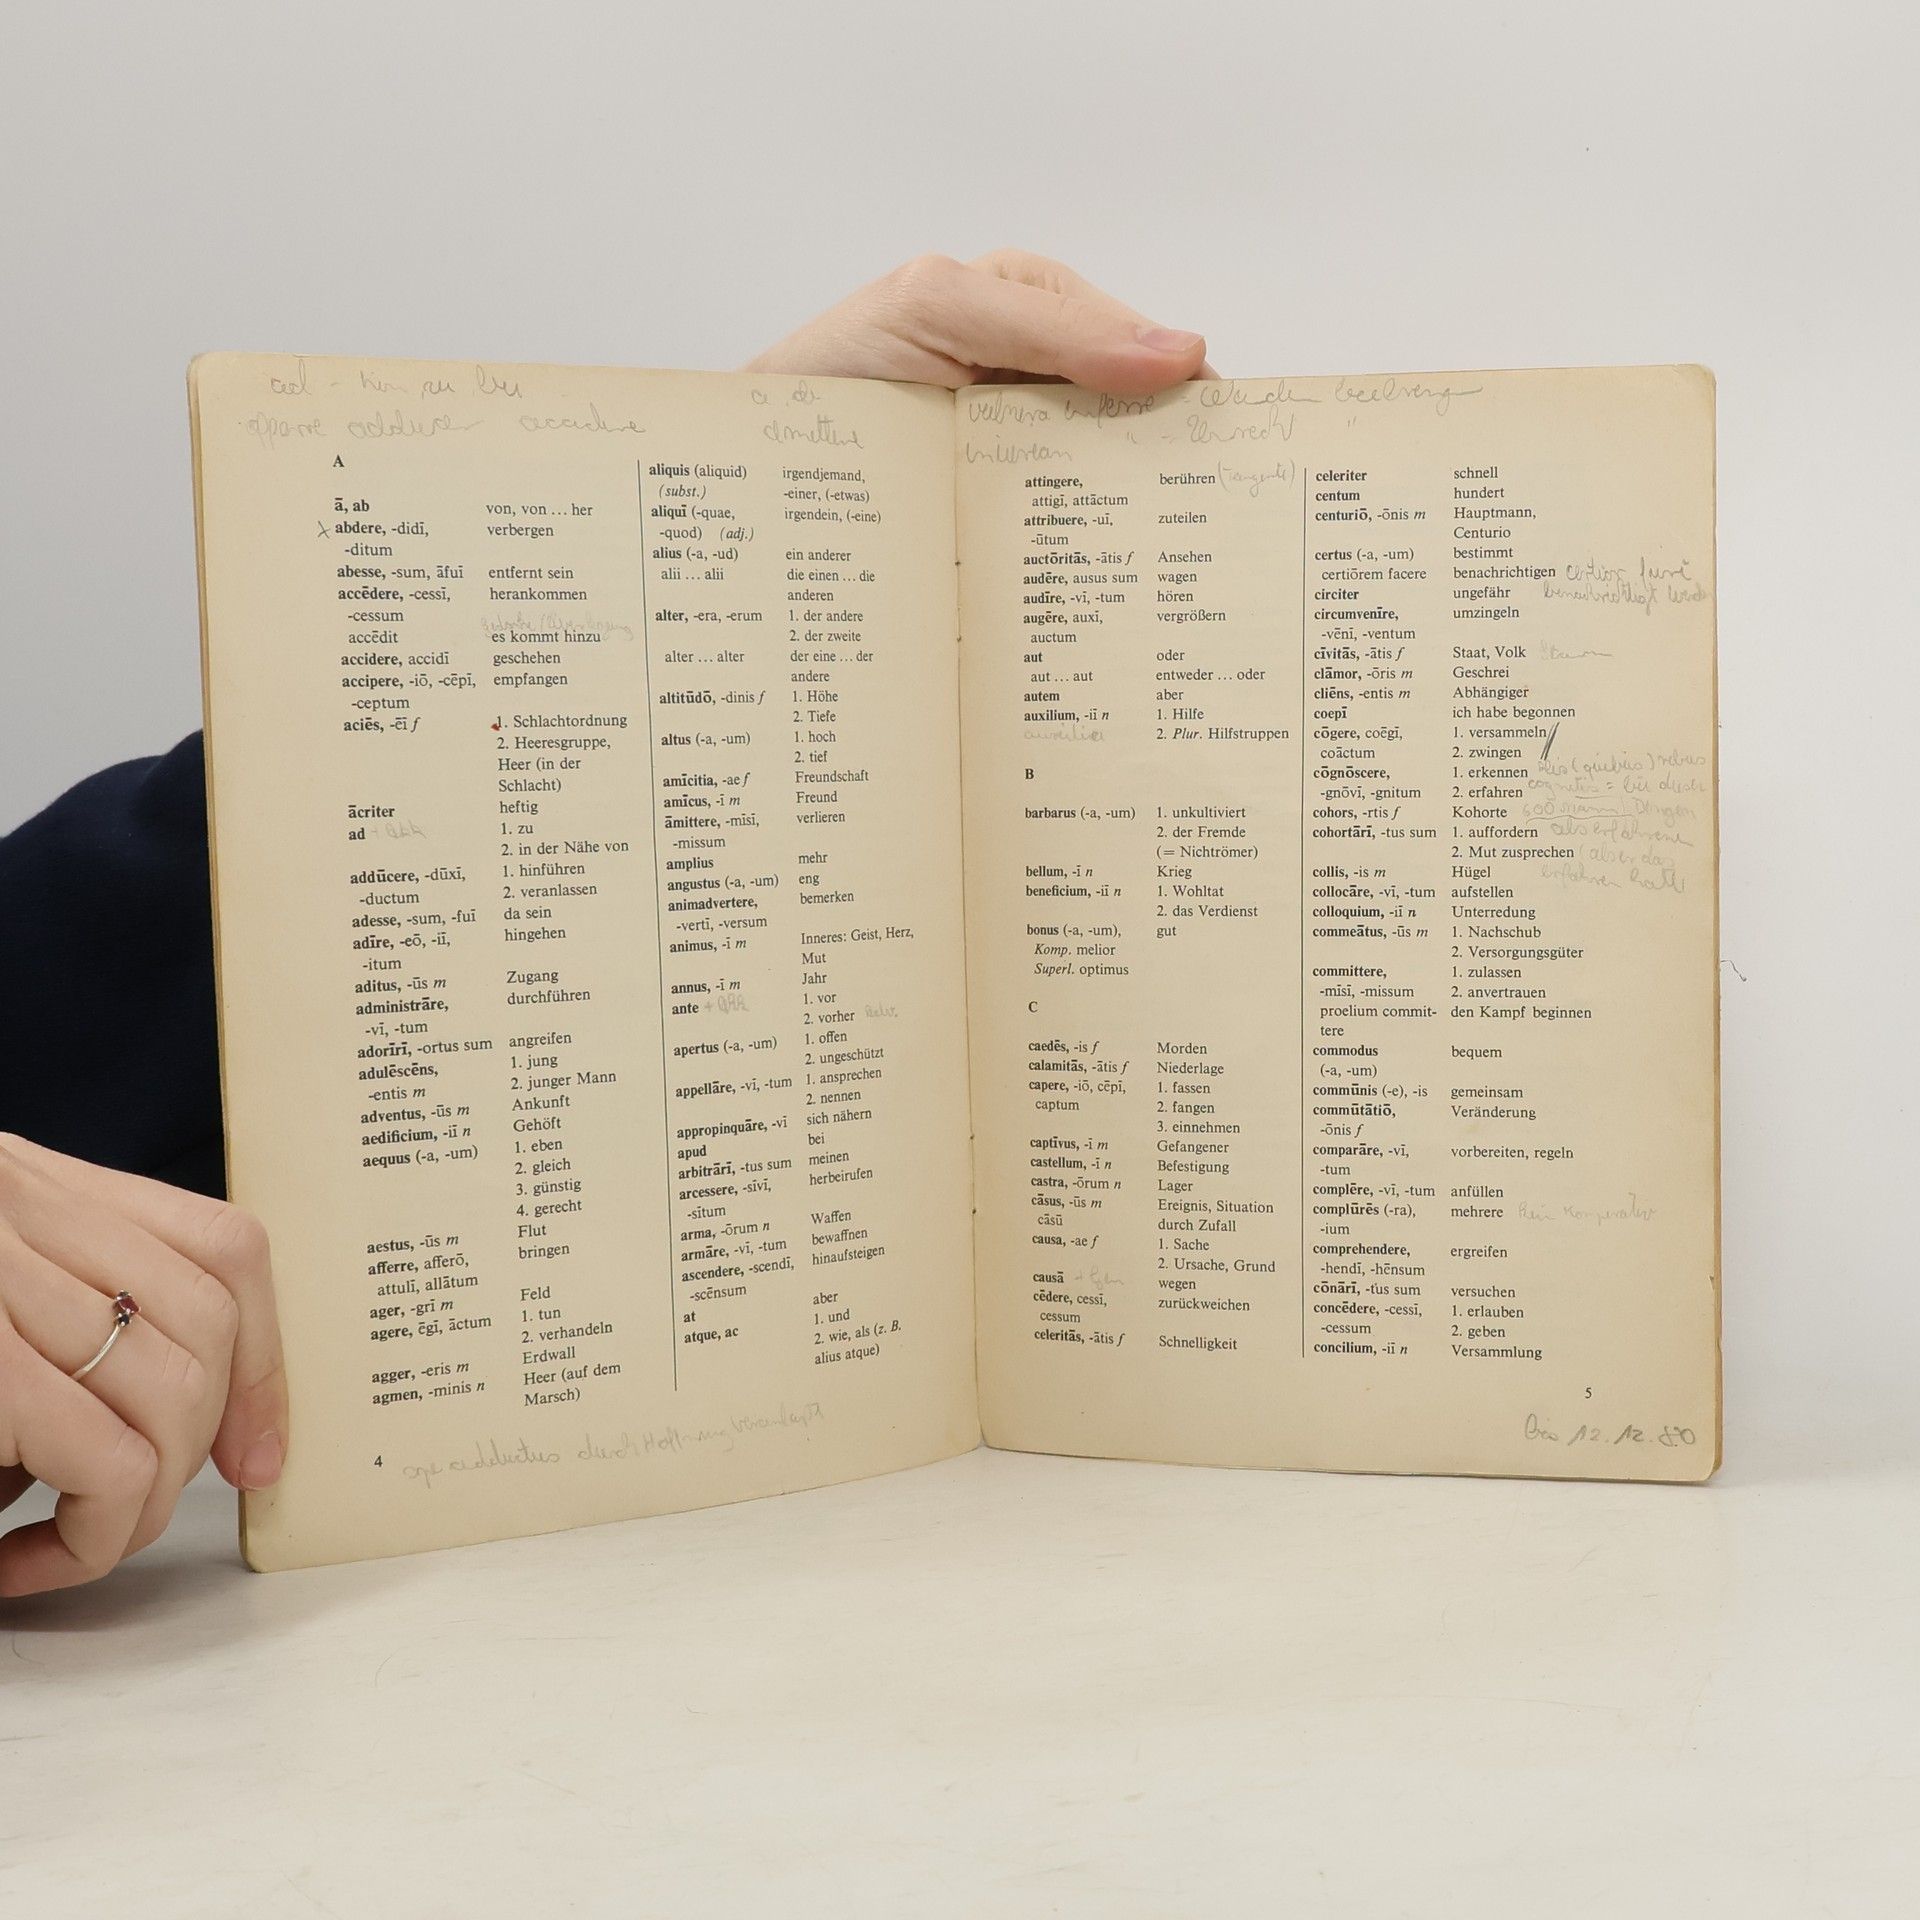 ad - hin, zu, bei
adducere accidere
A
ā, ab von, von … her
abdere, -didī, verbergen
-ditum
abesse, -sum, āfuī entfernt sein
accēdere, -cessī, herankommen
-cessum
accēdit es kommt hinzu
accidere, accidī geschehen
accipere, -iō, -cēpī, empfangen
-ceptum
aciēs, -ēī f 1. Schlachtordnung
2. Heeresgruppe,
Heer (in der
Schlacht)
ācriter heftig
ad + Akk 1. zu
2. in der Nähe von
addūcere, -dūxī, 1. hinführen
-ductum 2. veranlassen
adesse, -sum, -fuī da sein
adīre, -eō, -iī, hingehen
-itum
aditus, -ūs m Zugang
administrāre, durchführen
-vī, -tum
adorīrī, -ortus sum angreifen
adulēscēns, 1. jung
-entis m 2. junger Mann
adventus, -ūs m Ankunft
aedificium, -iī n Gehöft
aequus (-a, -um) 1. eben
2. gleich
3. günstig
4. gerecht
aestus, -ūs m Flut
afferre, afferō, bringen
attulī, allātum
ager, -grī m Feld
agere, ēgī, āctum 1. tun
2. verhandeln
agger, -eris m Erdwall
agmen, -minis n Heer (auf dem
Marsch)
aliquis (aliquid) irgendjemand,
(subst.) -einer, (-etwas)
aliquī (-quae, irgendein, (-eine)
-quod) (adj.)
alius (-a, -ud) ein anderer
alii … alii die einen … die
anderen
alter, -era, -erum 1. der andere
2. der zweite
alter … alter der eine … der
andere
altitūdō, -dinis f 1. Höhe
2. Tiefe
altus (-a, -um) 1. hoch
2. tief
amīcitia, -ae f Freundschaft
amīcus, -ī m Freund
āmittere, -mīsī, verlieren
-missum
amplius mehr
angustus (-a, -um) eng
animadvertere, bemerken
-vertī, -versum
animus, -ī m Inneres: Geist, Herz,
Mut
annus, -ī m Jahr
ante + Akk 1. vor
2. vorher
apertus (-a, -um) 1. offen
2. ungeschützt
appellāre, -vī, -tum 1. ansprechen
2. nennen
appropinquāre, -vī sich nähern
apud bei
arbitrārī, -tus sum meinen
arcessere, -sīvī, herbeirufen
-sītum
arma, -ōrum n Waffen
armāre, -vī, -tum bewaffnen
ascendere, -scendī, hinaufsteigen
-scēnsum
at aber
atque, ac 1. und
2. wie, als (z. B.
alius atque)
4
spe adductus durch Hoffnung veranlaßt
attingere, berühren
attigī, attāctum
attribuere, -uī, zuteilen
-ūtum
auctōritās, -ātis f Ansehen
audēre, ausus sum wagen
audīre, -vī, -tum hören
augēre, auxī, vergrößern
auctum
aut oder
aut … aut entweder … oder
autem aber
auxilium, -iī n 1. Hilfe
auxilia 2. Plur. Hilfstruppen
B
barbarus (-a, -um) 1. unkultiviert
2. der Fremde
(= Nichtrömer)
bellum, -ī n Krieg
beneficium, -iī n 1. Wohltat
2. das Verdienst
bonus (-a, -um), gut
Komp. melior
Superl. optimus
C
caedēs, -is f Morden
calamitās, -ātis f Niederlage
capere, -iō, cēpī, 1. fassen
captum 2. fangen
3. einnehmen
captīvus, -ī m Gefangener
castellum, -ī n Befestigung
castra, -ōrum n Lager
cāsus, -ūs m Ereignis, Situation
cāsū durch Zufall
causa, -ae f 1. Sache
2. Ursache, Grund
causā + Gen wegen
cēdere, cessī, zurückweichen
cessum
celeritās, -ātis f Schnelligkeit
celeriter schnell
centum hundert
centuriō, -ōnis m Hauptmann,
Centurio
certus (-a, -um) bestimmt
certiōrem facere benachrichtigen
circiter ungefähr
circumvenīre, umzingeln
-vēnī, -ventum
cīvitās, -ātis f Staat, Volk
clāmor, -ōris m Geschrei
cliēns, -entis m Abhängiger
coepī ich habe begonnen
cōgere, coēgī, 1. versammeln
coāctum 2. zwingen
cōgnōscere, 1. erkennen
-gnōvī, -gnitum 2. erfahren
cohors, -rtis f Kohorte
cohortārī, -tus sum 1. auffordern
2. Mut zusprechen
collis, -is m Hügel
collocāre, -vī, -tum aufstellen
colloquium, -iī n Unterredung
commeātus, -ūs m 1. Nachschub
2. Versorgungsgüter
committere, 1. zulassen
-mīsī, -missum 2. anvertrauen
proelium commit- den Kampf beginnen
tere
commodus bequem
(-a, -um)
commūnis (-e), -is gemeinsam
commūtātiō, Veränderung
-ōnis f
comparāre, -vī, vorbereiten, regeln
-tum
complēre, -vī, -tum anfüllen
complūrēs (-ra), mehrere kein Komparativ
-ium
comprehendere, ergreifen
-hendī, -hēnsum
cōnārī, -tus sum versuchen
concēdere, -cessī, 1. erlauben
-cessum 2. geben
concilium, -iī n Versammlung
5
bis 12.12.80